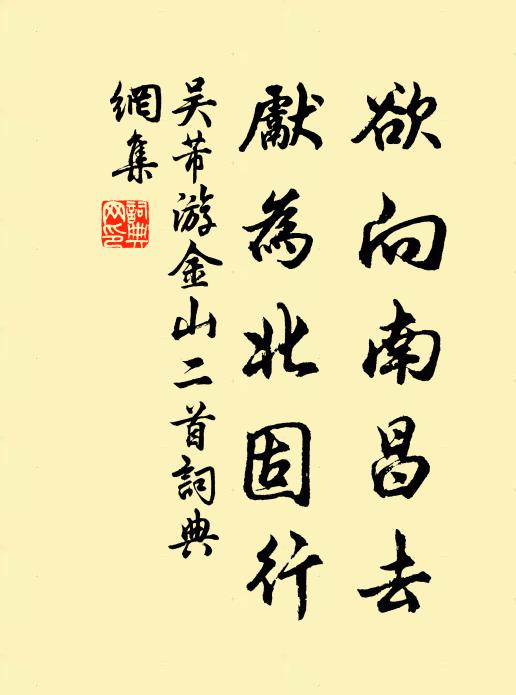 欲向南昌去
獻為北固行
吳芾游金山二首詞典
網集
詞典
网印